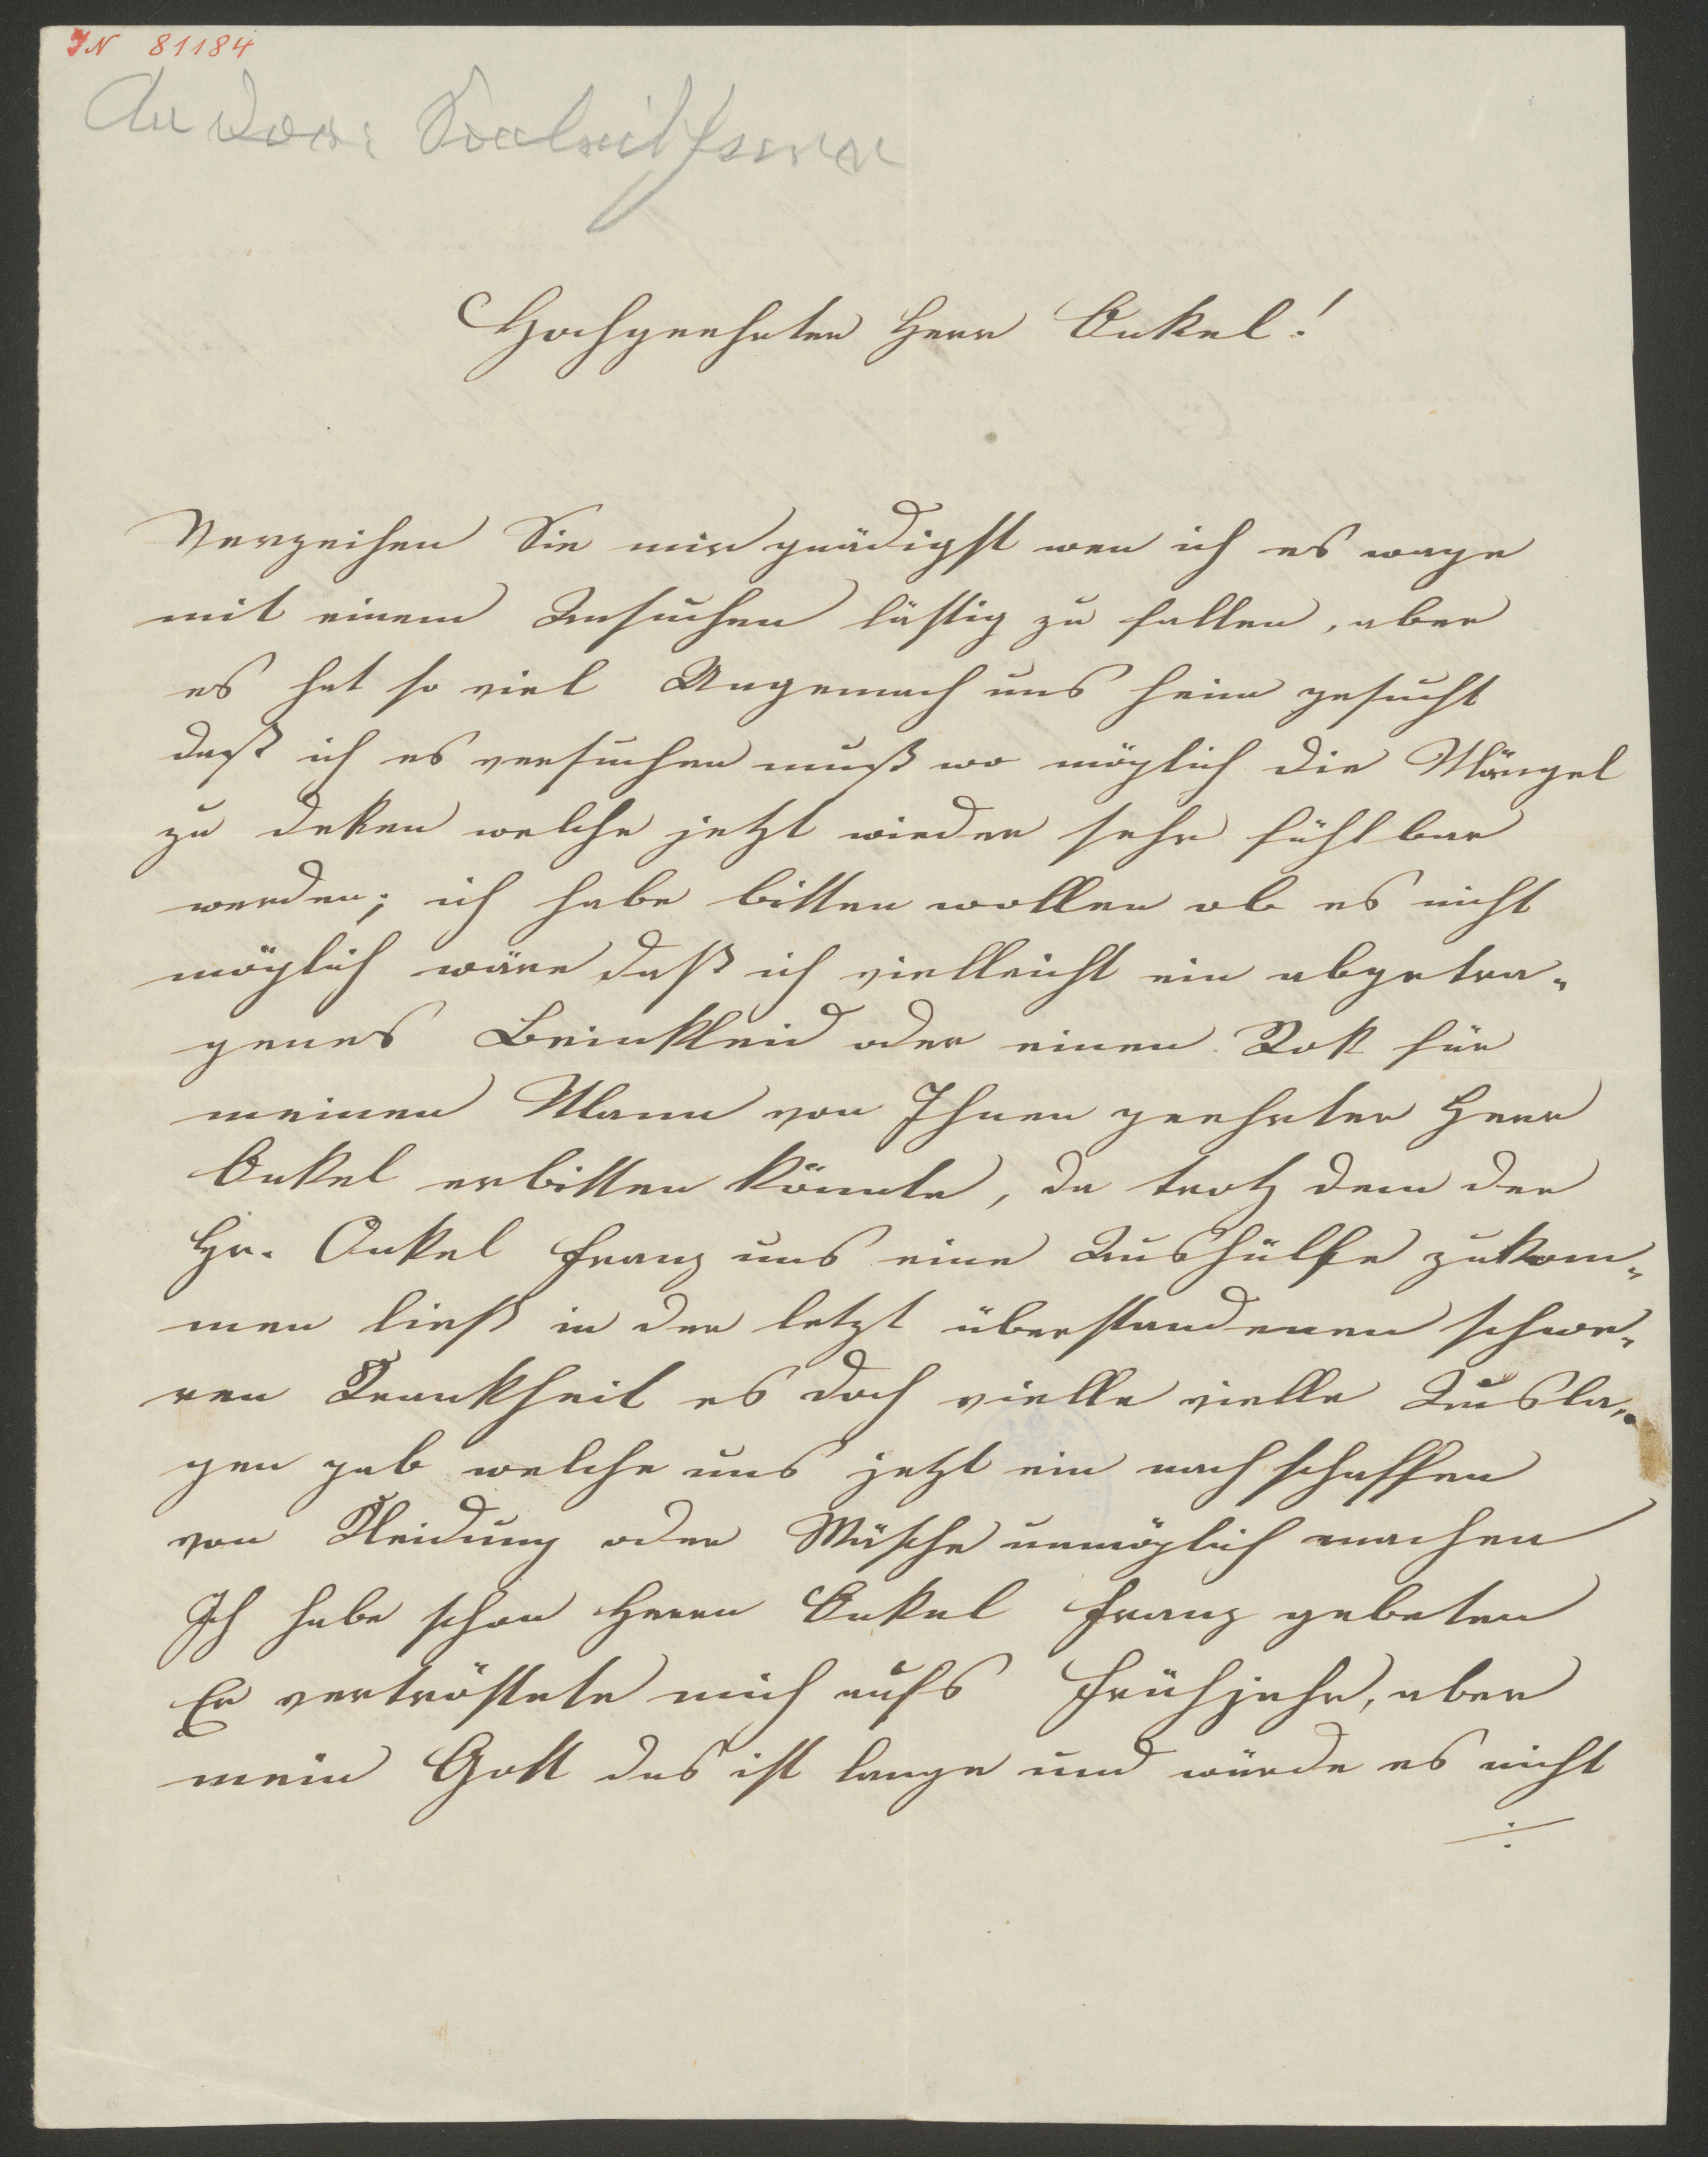 IN 81184
Hochgeehrter Herr Onkel!
Verzeihen Sie mir gnädigst wen ich es wage
mit einem Ansuchen lästig zu fallen, aber
es hat so viel Ungemach uns heim gesucht
daß ich es versuchen muß wo möglich die Mängel
zu deken welche jetzt wieder sehr fühlbar
werden; ich habe bitten wollen ob es nicht
möglich wäre daß ich vielleicht ein abgetra-
genes Beinkleid oder einen Rok für
meinen Mann von Ihnen geehrter Herr
Onkel erbitten könnte, da trotz dem der
Hr. Onkel Franz uns eine Aushülfe zukom-
men ließ in der letzt überstandenen schwe-
ren Krankheit es doch vielle vielle Ausla-
gen gab welche uns jetzt ein nach schaffen
von Kleidung oder Wäsche unmöglich machen
Ich habe schon Herrn Onkel Franz gebeten
Er vertröstete mich aufs Frühjahr, aber
mein Gott das ist lange und würde es nicht